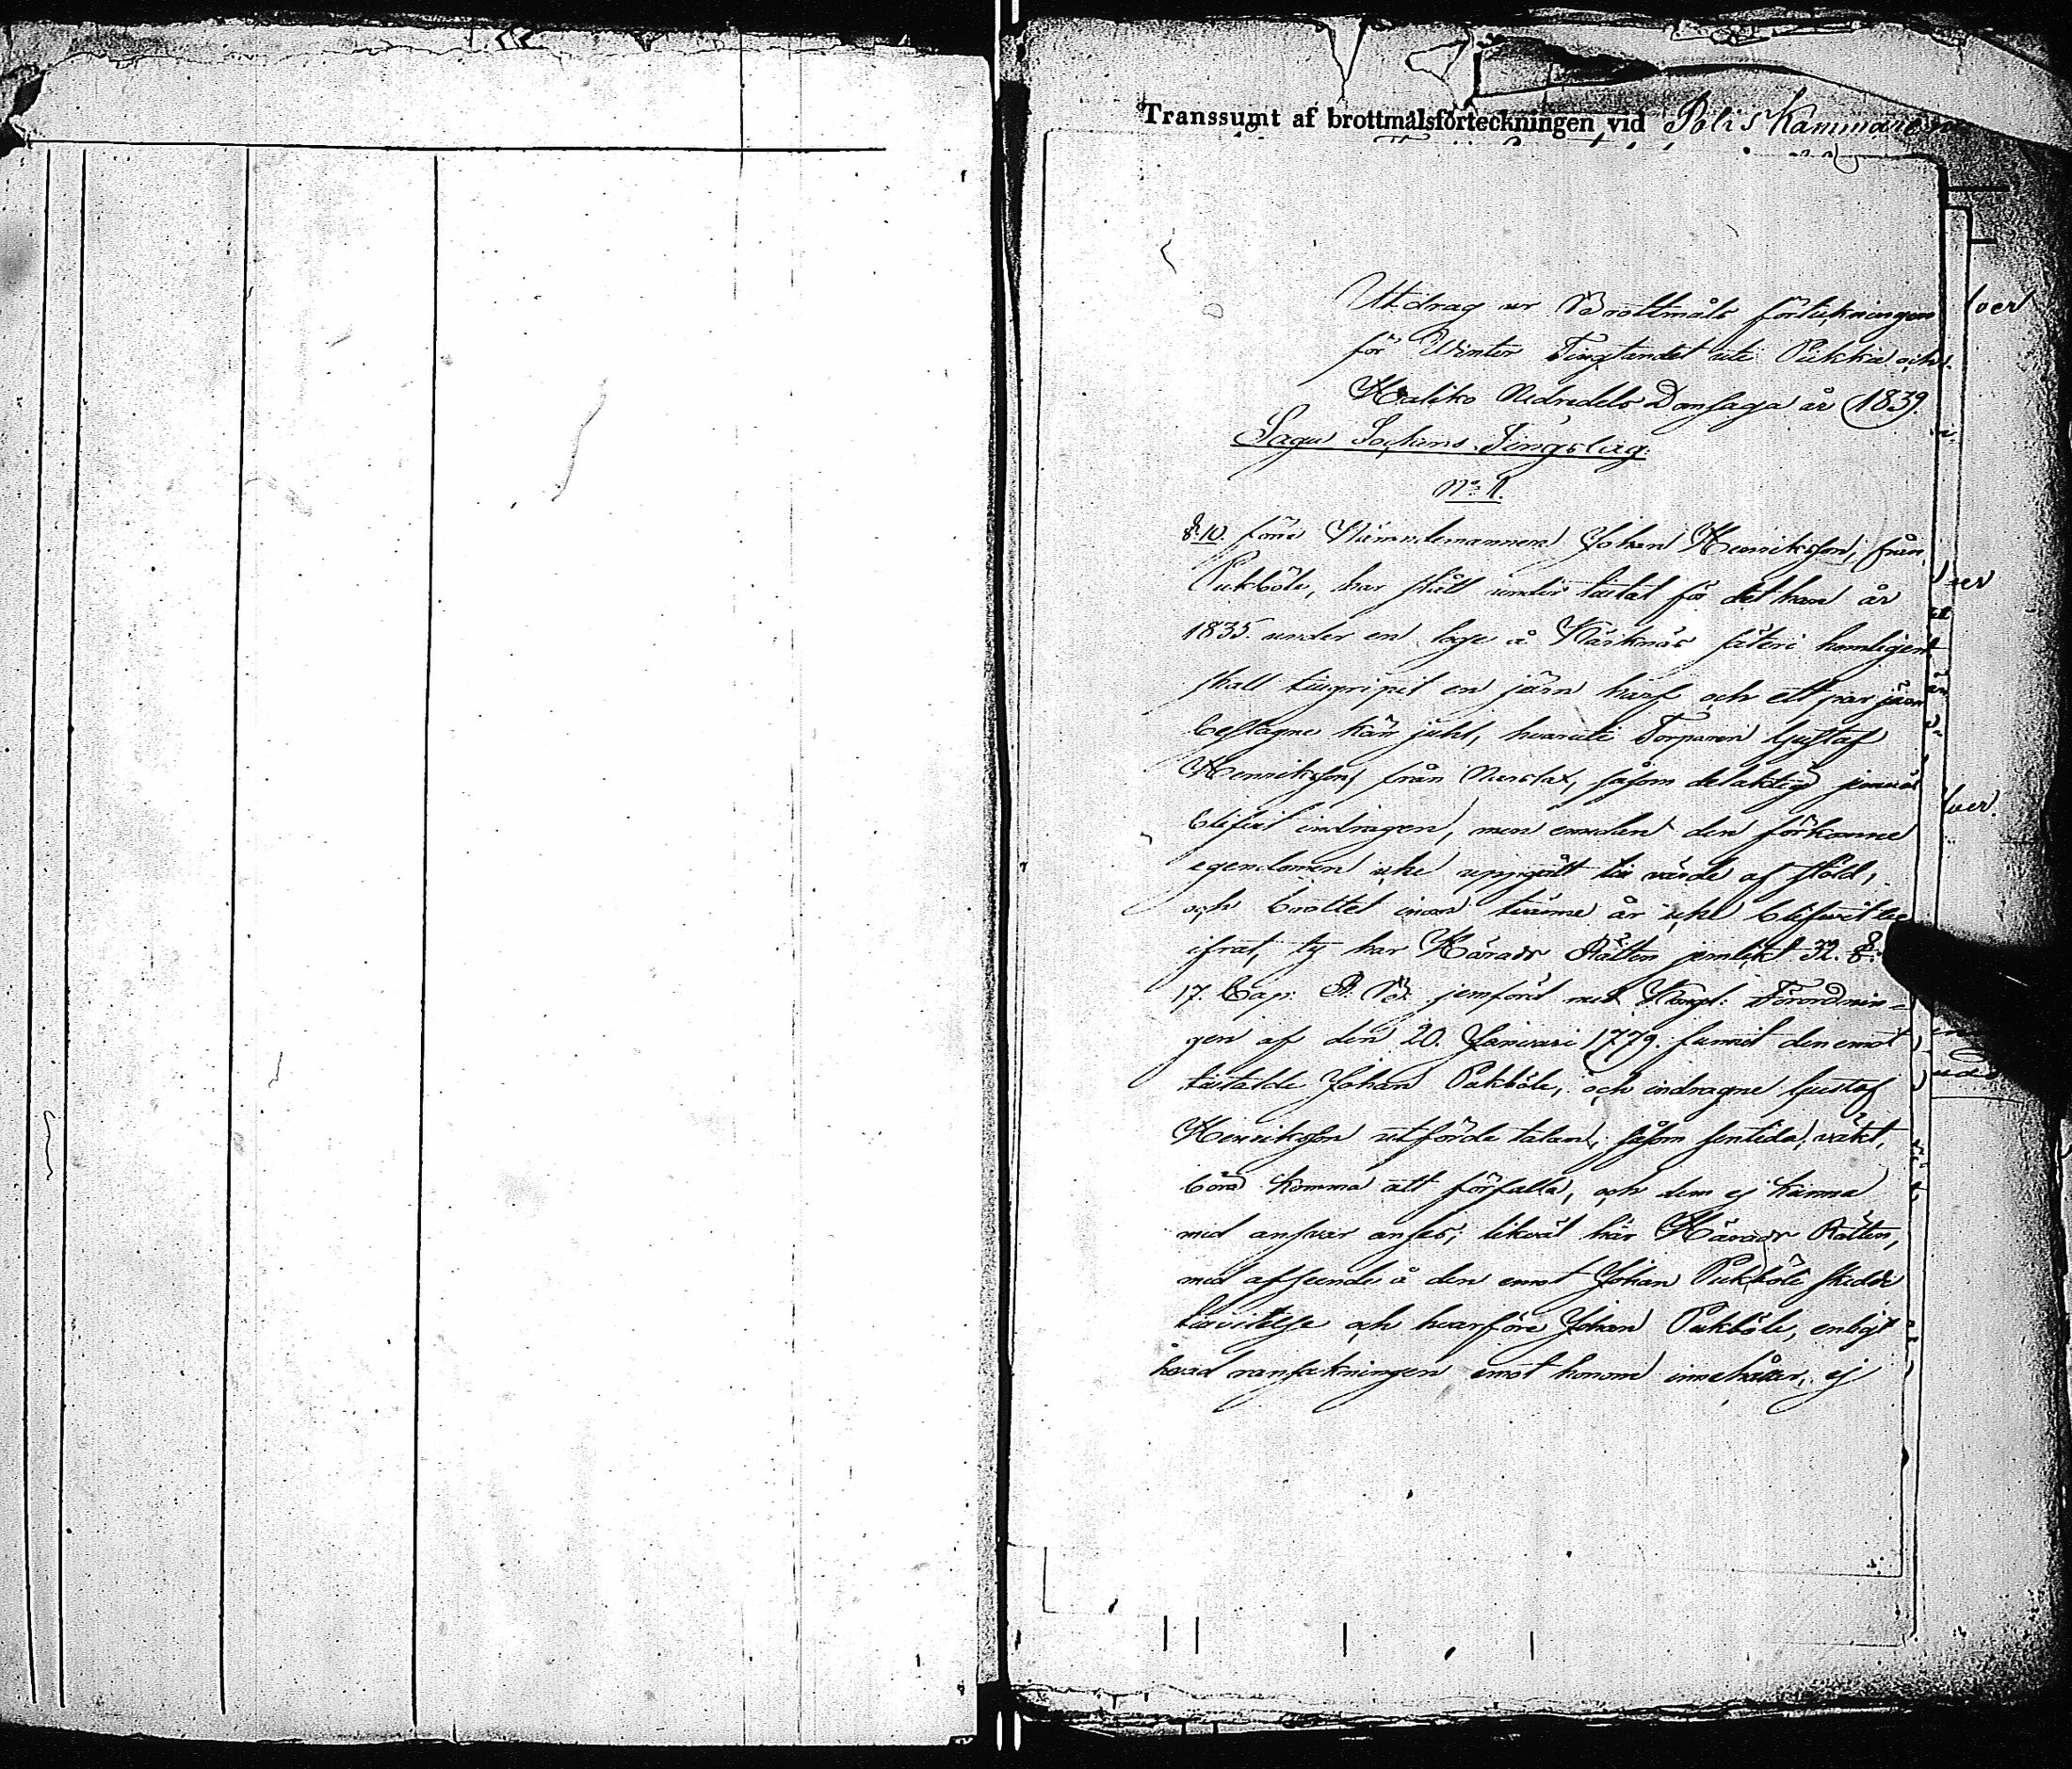 Transsumt af brottmålsförteckningen vid Polis Kammaren
Utdrag ur Brottmåls förtekningen
för Winter Tingtandet uti Pikkie och
Haliko Nedredels Domsaga år 1839.
Sagu Sockens Tingslag.
No: 1.
§ 10. förre Nämndemannen Johan Henriksson, från
Pukböle, har stått under tiltal för det han år
1835. under en loge å Kärknäs säteri hemligen
skall tilgripit en järn harf och ett par järn
beslagne kärr juhl, hvaruti Torparen Gustaf
Henriksson från såsom delaktig jemväl
blifvit indragen, men emedan den förkomne
egendomen icke uppgått till värde af stöld,
och brottet inom tvänne år icke blifvit be
ifrat, ty har Härads Rätten jemlikt 32. §.
17. Cap: R. B. jemförd med Kongl: Förordnin-
gen af den 20. Januari 1779. funnit den emot
tiltalde Johan Pukböle, och indragne Gustaf
Henriksson utförde talan, såsom sentida väkt,
böra komma att förfalla, och dem ej kunna
med ansvar anses; likväl har Härads Rätten,
med afseende å den emot Johan Pukböle skedde
tilvitelse och hvarföre Johan Pukböle, enligt
hvad ransakningen emot honom innehåller, ej